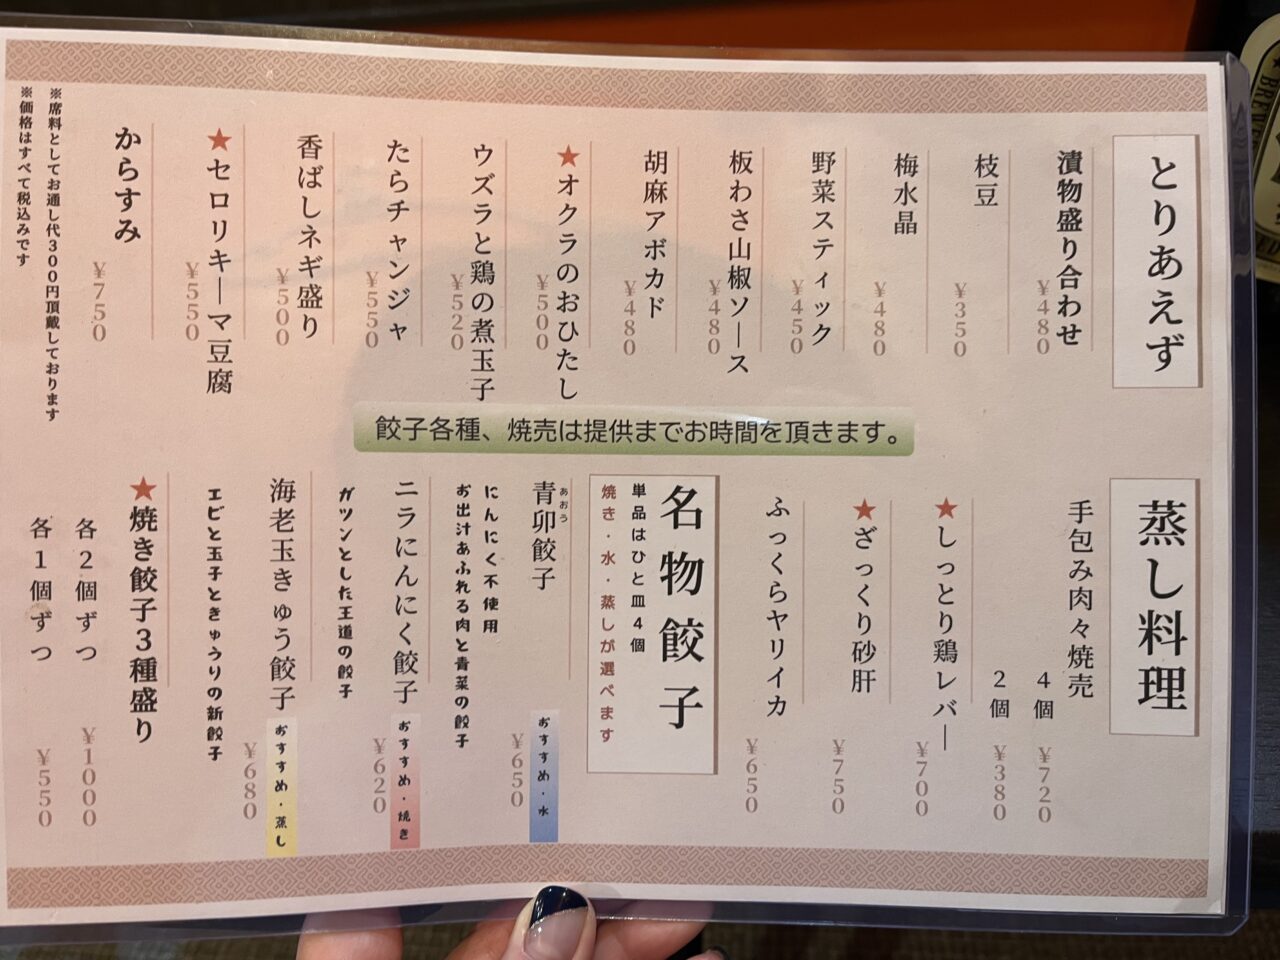 とりあえず
漬物盛り合わせ
¥480
枝豆
¥350
梅水晶
¥480
野菜スティック
¥450
板わさ山椒ソース
¥480
胡麻アボカド
¥480
★オクラのおひたし
¥500
ウズラと鶏の煮玉子
¥520
たらチャンジャ
¥550
香ばしネギ盛り
¥500
★セロリキーマ豆腐
¥550
からすみ
¥750
※席料としてお通し代300円頂戴しております
※価格はすべて税込みです
餃子各種、焼売は提供までお時間を頂きます。
蒸し料理
手包み肉々焼売
4個 ¥720
2個 ¥380
★しっとり鶏レバー
¥700
★ざっくり砂肝
¥750
ふっくらヤリイカ
¥650
名物餃子
単品はひと皿4個
焼き・水・蒸しが選べます
あおう
青卯餃子
おすすめ・水
¥650
にんにく不使用
お出汁あふれる肉と青菜の餃子
ニラにんにく餃子
おすすめ・焼き
¥620
ガツンとした王道の餃子
海老玉きゅう餃子
おすすめ・蒸し
¥680
エビと玉子ときゅうりの新餃子
★焼き餃子3種盛り
各2個ずつ ¥1000
各1個ずつ ¥550